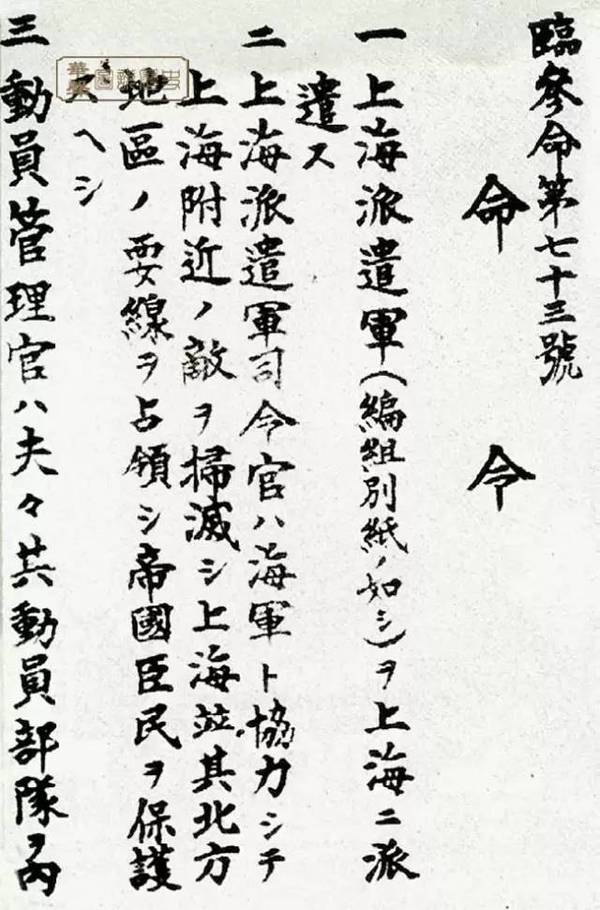 臨參命第七十三號
命令
一 上海派遣軍(編組別紙ノ如シ)ヲ上海ニ派
遣ス
二 上海派遣軍司令官ハ海軍ト協力シテ
上海附近ノ敵ヲ掃滅シ上海並其北方
地區ノ要線ヲ占領シ帝國臣民ヲ保護
スヘシ
三 動員管理官ハ夫々其動員部隊ヲ內